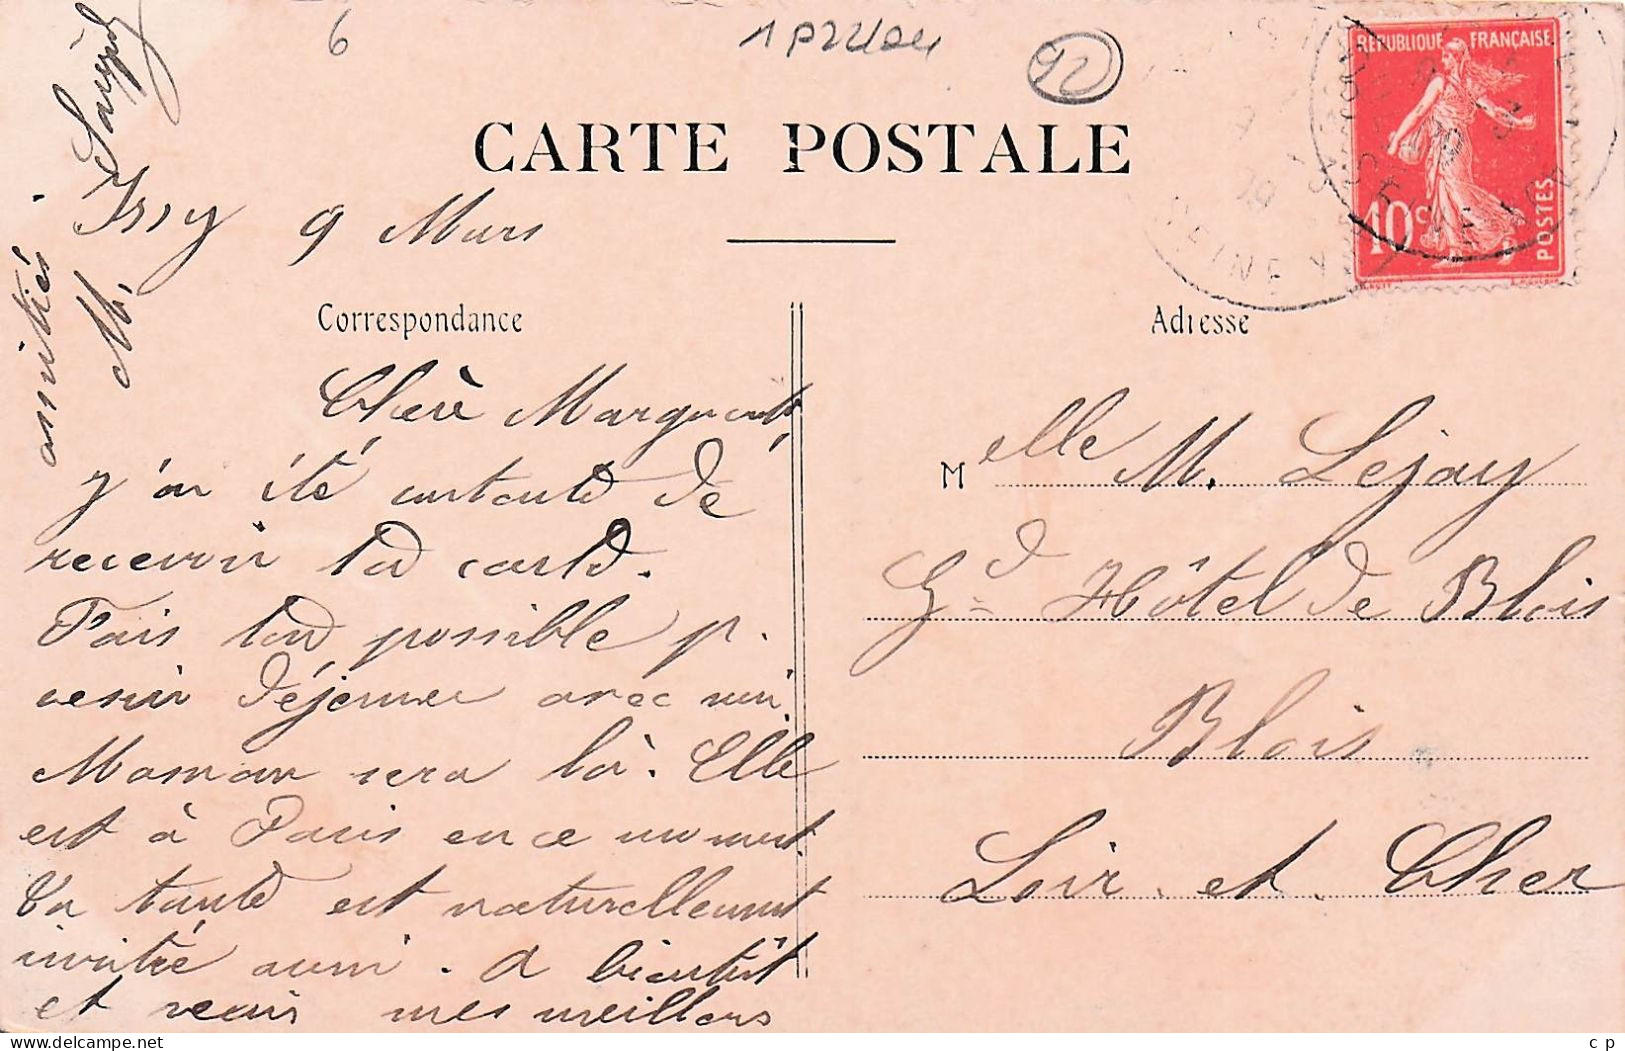 6
92
CARTE POSTALE
RÉPUBLIQUE FRANÇAISE
10 c
POSTES
Issy 9 Mars
Correspondance
Chère Marguerite,
J'ai été contente de
recevoir ta carte.
Fais ton possible p.
venir déjeuner avec moi.
Maman sera là. Elle
est à Paris en ce moment.
Ta tante est naturellement
invitée aussi. A bientôt
et reçois mes meilleurs
amitiés
M.
Adresse
Melle M. Lejay
Gd Hôtel de Blois
Blois
Loir et Cher
delcampe.net
c p